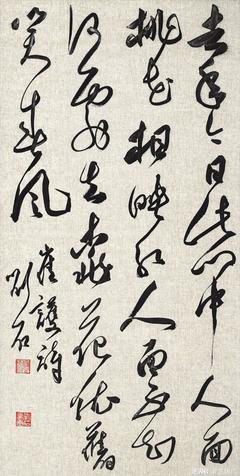 去年今日此門中人面
桃花相映紅人面不知
何處去桃花依舊
笑春風
崔護詩
劉石